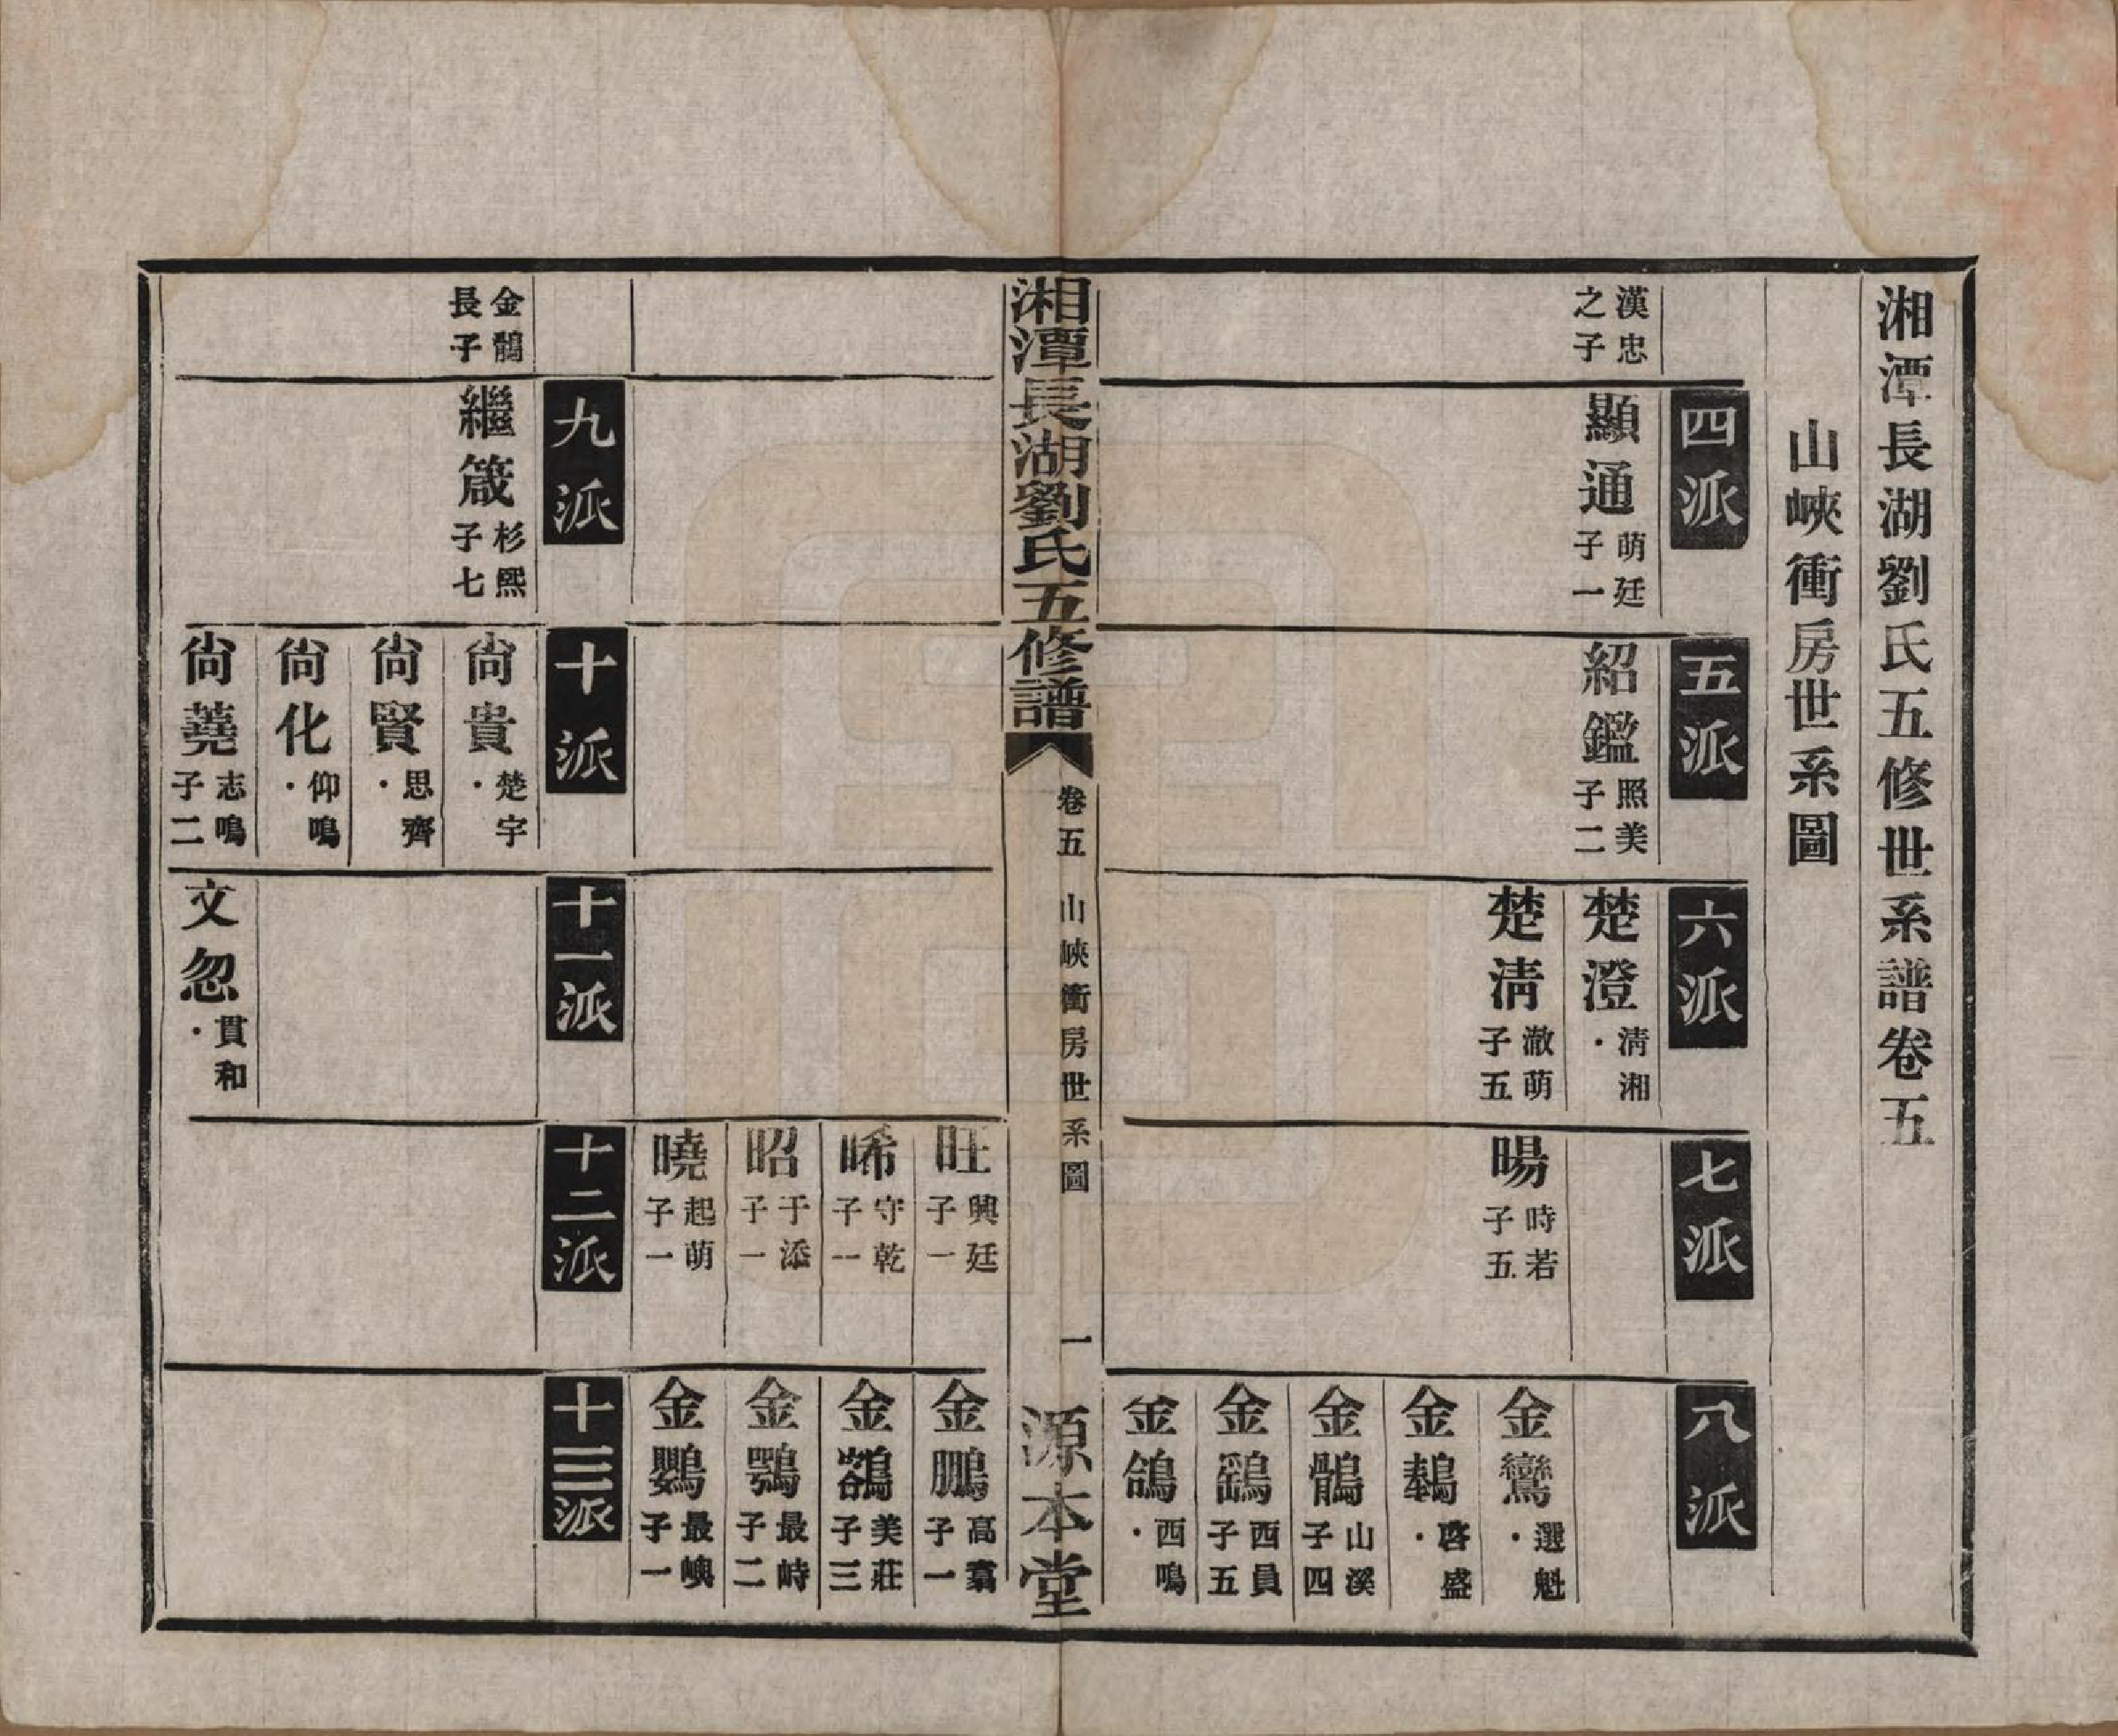 湘潭長湖劉氏五修世系譜卷五
山峽衝房世系圖
四派
五派
六派
七派
八派
漢忠
之子
顯通
萌廷
子一
紹鑑
照美
子二
楚澄
清湘
・
楚清
澈萌
子五
暘
時若
子五
金鸞
選魁
・
金鶈
啓盛
・
金鶻
山溪
子四
金鷂
西員
子五
金鴿
西鳴
・
湘潭長湖劉氏五修譜
卷五
山峽衝房世系圖
一
源本堂
旺
興廷
子一
晞
守乾
子一
昭
于添
子一
曉
起萌
子一
金鵬
高翥
子一
金鵒
美莊
子三
金鶚
最峙
子二
金鸚
最嶼
子一
九派
十派
十一派
十二派
十三派
金鶻
長子
繼箴
杉熙
子七
尙貴
楚宇
・
尙賢
思齊
・
尙化
仰鳴
・
尙蕘
志鳴
子二
文忽
貫和
・